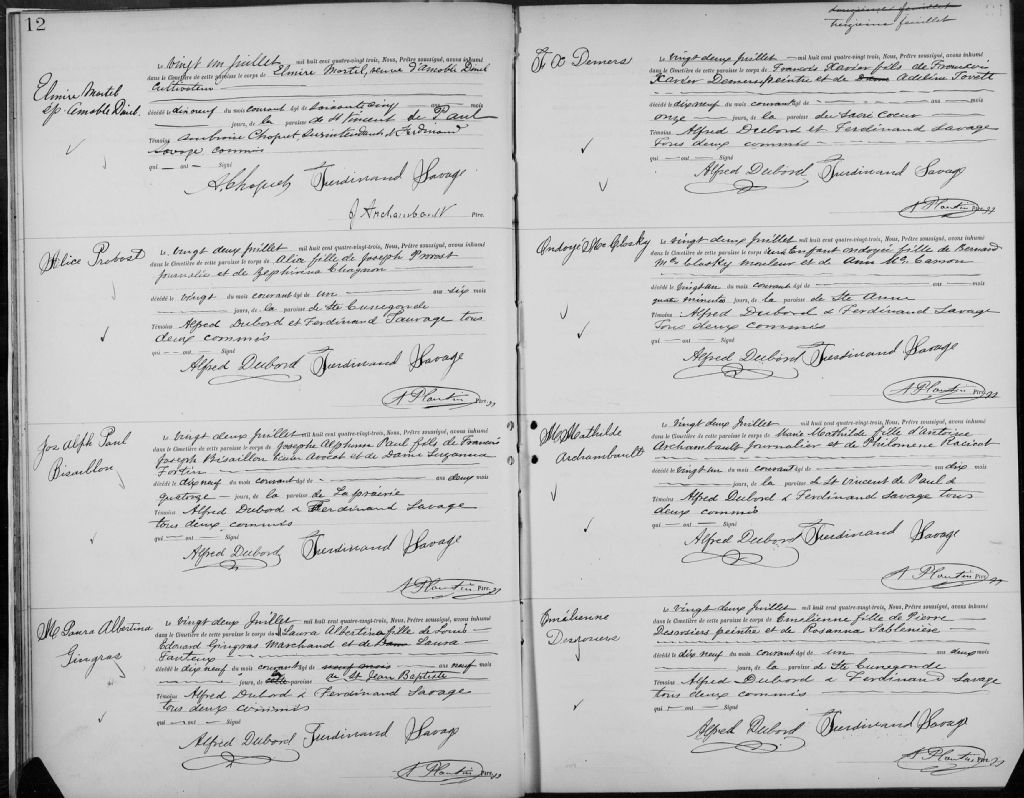 12
Elmire Mortel
ép. Amable Daniel
Le vingt un juillet mil huit cent quatre-vingt-trois, Nous, Prêtre soussigné, avons inhumé
dans le Cimetière de cette paroisse le corps de Elmire Mortel, veuve d'Amable Daniel
Cultivateur
décédé le dix neuf du mois courant âgé de soixante cinq ans mois
jours, de la paroisse de St Vincent de Paul
Témoins Ambroise Choquet, Surintendant, & Ferdinand
Savage commis
qui ont Signé
A. Choquet Ferdinand Savage
J Archambault Ptre.
Alice Provost
Le vingt deux juillet mil huit cent quatre-vingt-trois, Nous, Prêtre soussigné, avons inhumé
dans le Cimetière de cette paroisse le corps de Alice fille de Joseph Provost
journalier et de Zéphirina Chagnon
décédé le vingt du mois courant âgé de un ans dix mois
jours, de la paroisse de Ste Cunegonde
Témoins Alfred Dubord et Ferdinand Sauvage tous
deux commis
qui ont Signé
Alfred Dubord Ferdinand Savage
A Plantin Ptre.
Jos Alph Paul
Bisaillon
Le vingt deux juillet mil huit cent quatre-vingt-trois, Nous, Prêtre soussigné, avons inhumé
dans le Cimetière de cette paroisse le corps de Joseph Alphonse Paul fils de François
Joseph Bisaillon Ecuier Avocat et de Dame Suzanna
Fortin
décédé le dix neuf du mois courant âgé de ans deux mois
quatorze jours, de la paroisse de Laprairie
Témoins Alfred Dubord & Ferdinand Savage
tous deux commis
qui ont Signé
Alfred Dubord Ferdinand Savage
A Plantin Ptre.
M Laura Albertina
Gingras
Le vingt deux juillet mil huit cent quatre-vingt-trois, Nous, Prêtre soussigné, avons inhumé
dans le Cimetière de cette paroisse le corps de Laura Albertina fille de Louis
Edouard Gingras Marchand et de Dame Laura
Fauteux
décédé le dix neuf du mois courant âgé de neuf mois ans neuf mois
jours, de cette paroisse de St Jean Baptiste
Témoins Alfred Dubord & Ferdinand Savage
tous deux commis
qui ont Signé
Alfred Dubord Ferdinand Savage
A Plantin Ptre.
treizième feuillet
F X Demers
Le vingt deux juillet mil huit cent quatre-vingt-trois, Nous, Prêtre soussigné, avons inhumé
dans le Cimetière de cette paroisse le corps de François Xavier fils de François
Xavier Demers peintre et de Dame Adeline
décédé le dix neuf du mois courant âgé de ans mois
onze jours, de la paroisse du Sacré Coeur
Témoins Alfred Dubord et Ferdinand Savage
tous deux commis
qui ont Signé
Alfred Dubord Ferdinand Savage
A Plantin Ptre.
Ondoyé Mc Closky
Le vingt deux juillet mil huit cent quatre-vingt-trois, Nous, Prêtre soussigné, avons inhumé
dans le Cimetière de cette paroisse le corps de un Enfant ondoyé fille de Bernard
Mc Closky mouleur et de Ann Mc Cannon
décédé le vingt un du mois courant âgé de ans mois
quinze minutes jours, de la paroisse de Ste Anne
Témoins Alfred Dubord & Ferdinand Savage
tous deux commis
qui ont Signé
Alfred Dubord Ferdinand Savage
A Plantin Ptre.
M Mathilde
Archambault
Le vingt deux juillet mil huit cent quatre-vingt-trois, Nous, Prêtre soussigné, avons inhumé
dans le Cimetière de cette paroisse le corps de Marie Mathilde fille d'Antoine
Archambault journalier et de Philomène
décédé le vingt un du mois courant âgé de ans dix mois
jours, de la paroisse de St Vincent de Paul
Témoins Alfred Dubord & Ferdinand Savage tous
deux commis
qui ont Signé
Alfred Dubord Ferdinand Savage
A Plantin Ptre.
Emélienne
Desrosiers
Le vingt deux juillet mil huit cent quatre-vingt-trois, Nous, Prêtre soussigné, avons inhumé
dans le Cimetière de cette paroisse le corps de Emelienne fille de Pierre
Desrosiers peintre et de Rosanna
décédé le dix neuf du mois courant âgé de un ans deux mois
jours, de la paroisse de Ste Cunegonde
Témoins Alfred Dubord & Ferdinand Savage
tous deux commis
qui ont Signé
Alfred Dubord Ferdinand Savage
A Plantin Ptre.